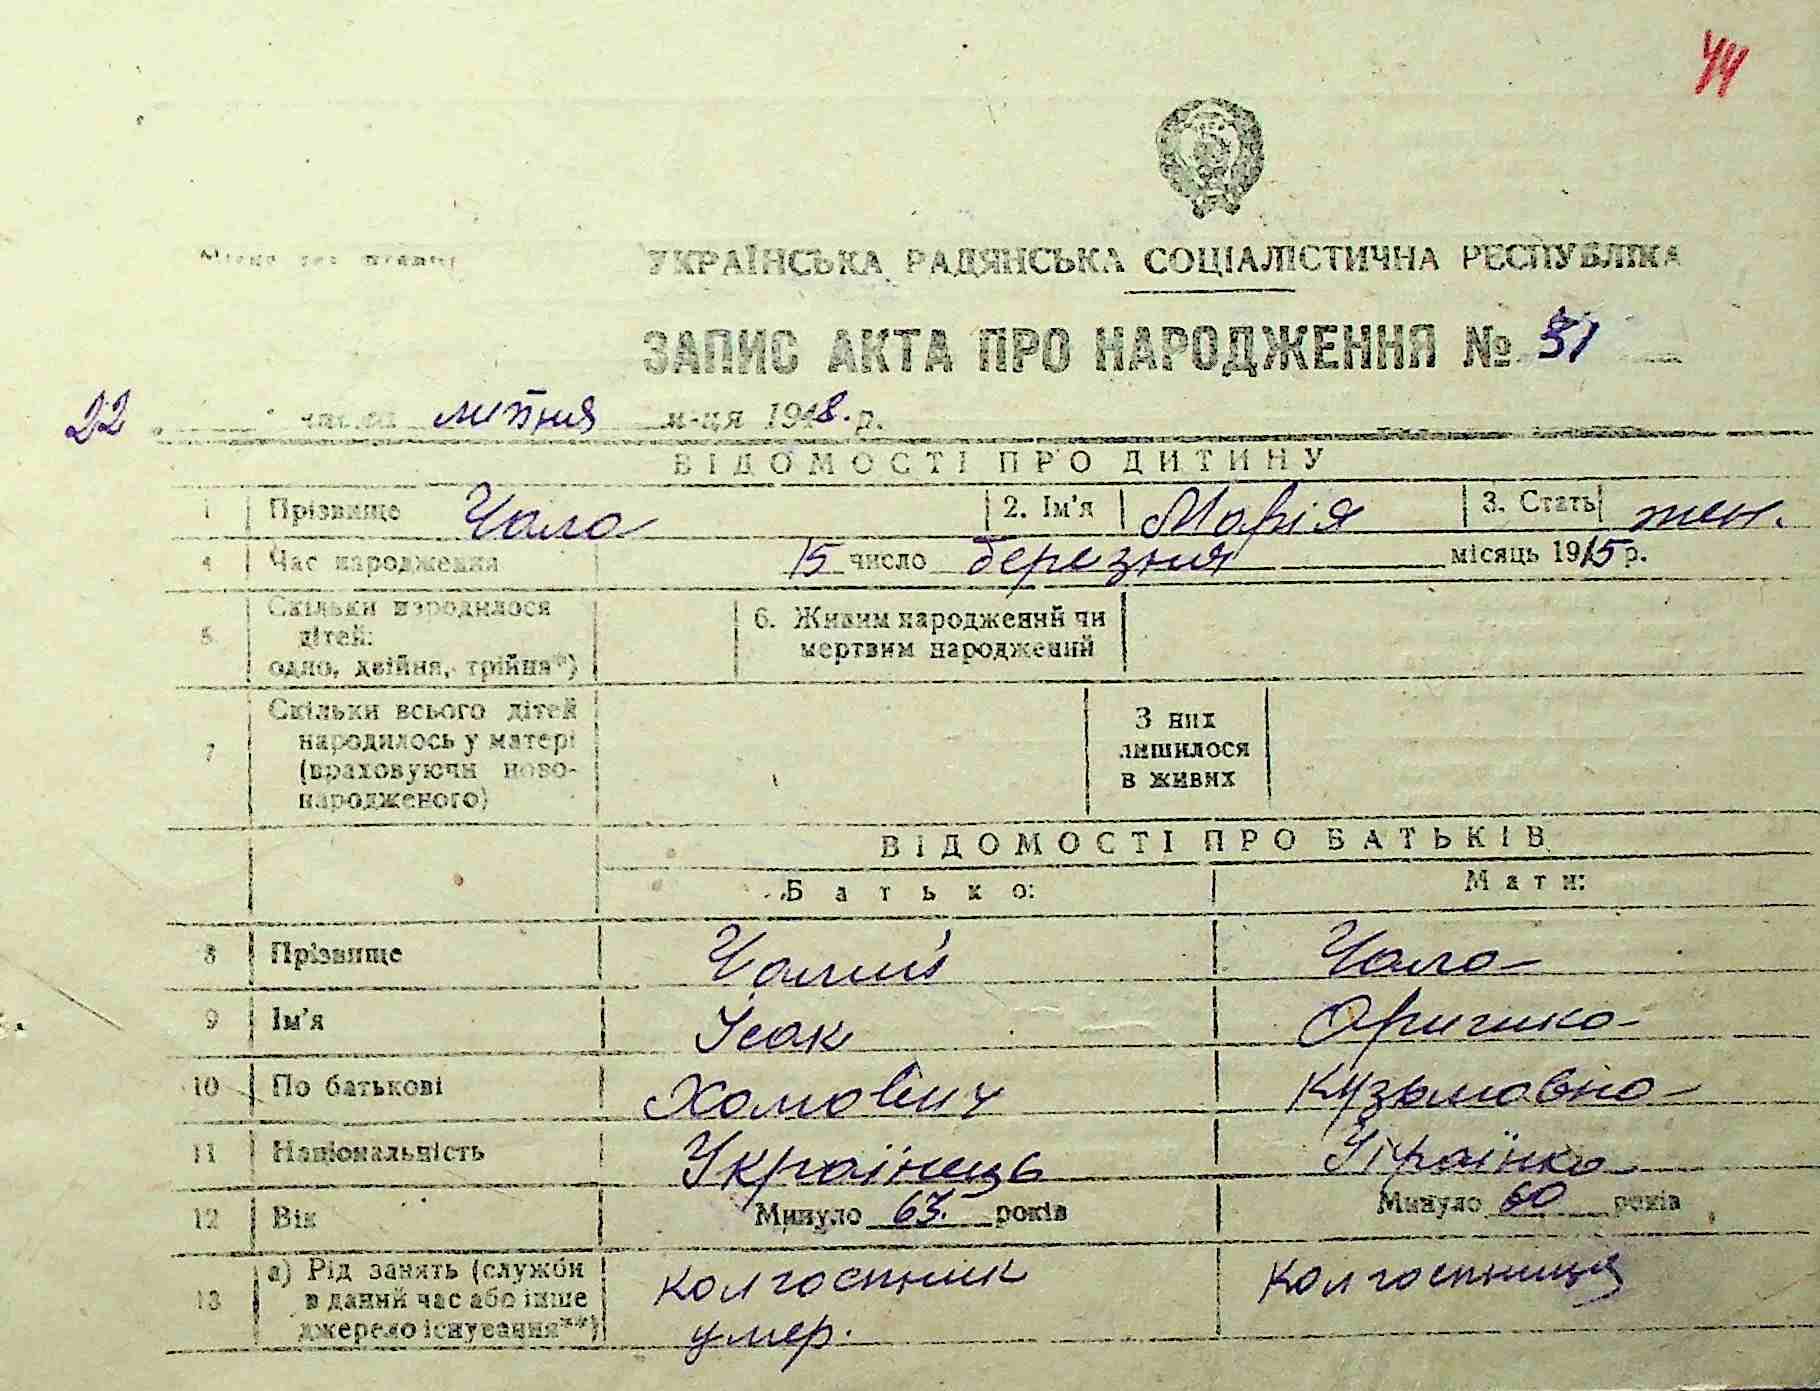 44
УКРАЇНСЬКА РАДЯНСЬКА СОЦІАЛІСТИЧНА РЕСПУБЛІКА
ЗАПИС АКТА ПРО НАРОДЖЕННЯ № 31
22 числа липня м-ця 1948. р.
ВІДОМОСТІ ПРО ДИТИНУ
1 Прізвище Чала 2. Ім'я Марія 3. Стать жен.
4 Час народження 15 число березня місяць 1915 р.
Скільки народилося
5 дітей: 6. Живим народжений чи
одно, двійня, трійня*) мертвим народжений
Скільки всього дітей З них
народилось у матері лишилося
7 (враховуючи ново- в живих
народженого)
ВІДОМОСТІ ПРО БАТЬКІВ
Батько: Мати:
8 Прізвище Чалий Чала
9 Ім'я Ісак Оришка
10 По батькові Хомович Кузьмовна
11 Національність Українець Українка
12 Вік Минуло 63. років Минуло 60 років
а) Рід занять (служби колгоспник колгоспниця
13 в даний час або інше
джерело існування**) умер.